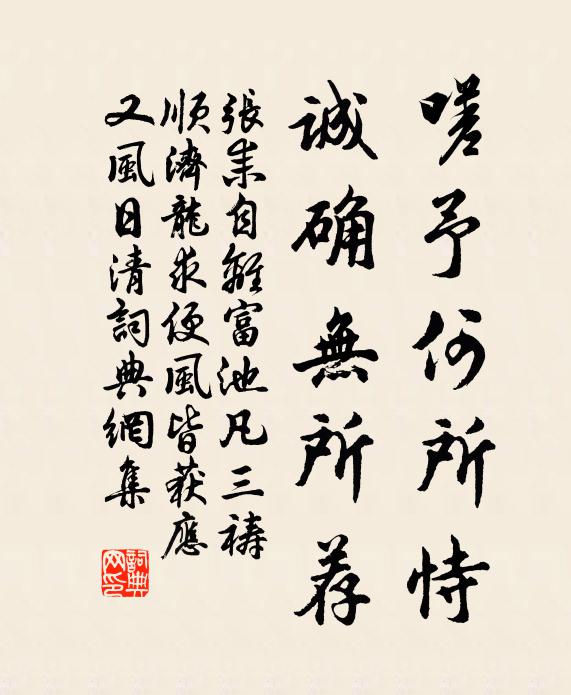 嗟予何所恃
誠确無所荐
張耒自離富池凡三禱
順濟龍求便風皆获應
又風日清詞典網集
詞典
网印